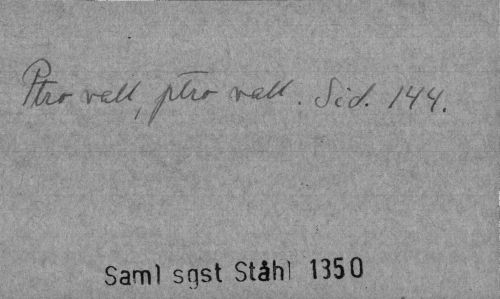 Ptro vall, ptro vall. Sid. 144.
Saml sgst Ståhl 1350